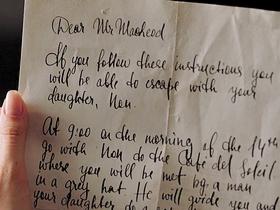 Dear Mr. Macleod
If you follow these instructions you
will be able to escape with your
daughter, Non.
At 9:00 on the morning of the 14th
go with Non to the Café del Soleil
where you will be met by a man
in a grey hat. He will guide you and
your daughter to a